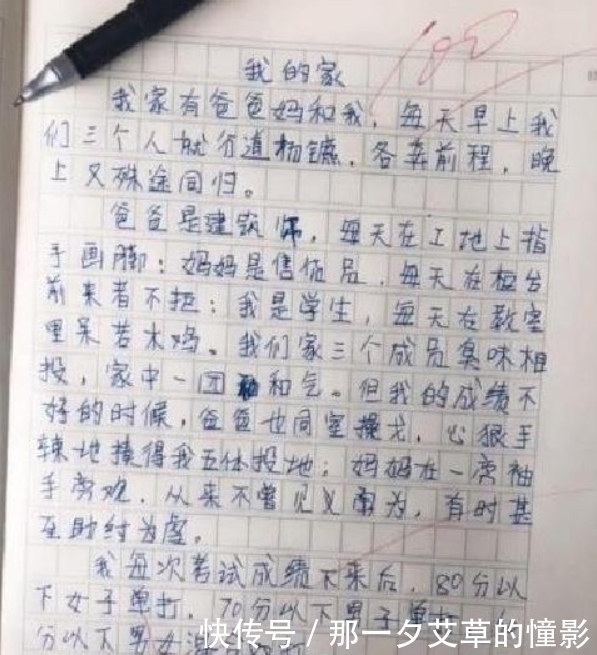 100
我的家
我家有爸爸妈和我，每天早上我
们三个人就分道扬镳，各奔前程，晚
上又殊途同归。
爸爸是建筑师，每天在工地上指
手画脚；妈妈是售货员，每天在柜台
前来者不拒；我是学生，每天在教室
里呆若木鸡。我们家三个成员臭味相
投，家中一团和气。但我的成绩不
好的时候，爸爸也同室操戈，心狠手
辣地揍得我五体投地；妈妈在一旁袖
手旁观，从来不曾见义勇为，有时甚
至助纣为虐。
我每次考试成绩下来后，80分以
下女子单打，70分以下男子单打，
分以下男女混
快传号/那一夕艾草的憧影